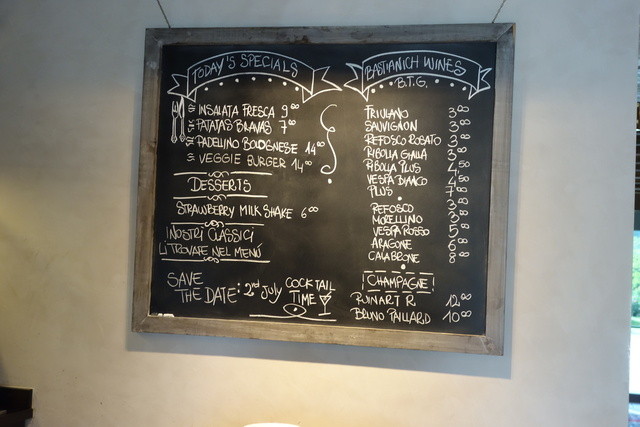 TODAY'S SPECIALS
INSALATA FRESCA 9.00
PATATAS BRAVAS 7.00
PADELLINO BOLOGNESE 14.00
VEGGIE BURGER 14.00
DESSERTS
STRAWBERRY MILK SHAKE 6.00
I NOSTRI CLASSICI
LI TROVATE NEL MENÚ
SAVE
THE DATE: 2nd July
COCKTAIL
TIME
BASTIANICH WINES
B.T.G.
FRIULANO 3.00
SAUVIGNON 3.00
REFOSCO ROSATO 3.00
RIBOLLA GIALLA 3.00
RIBOLLA PLUS 4.50
VESPA BIANCO 4.50
PLUS 7.00
REFOSCO 3.00
MORELLINO 3.00
VESPA ROSSO 5.00
ARAGONE 6.00
CALABRONE 8.00
CHAMPAGNE!
RUINART R. 12.00
BRUNO PAILLARD 10.00